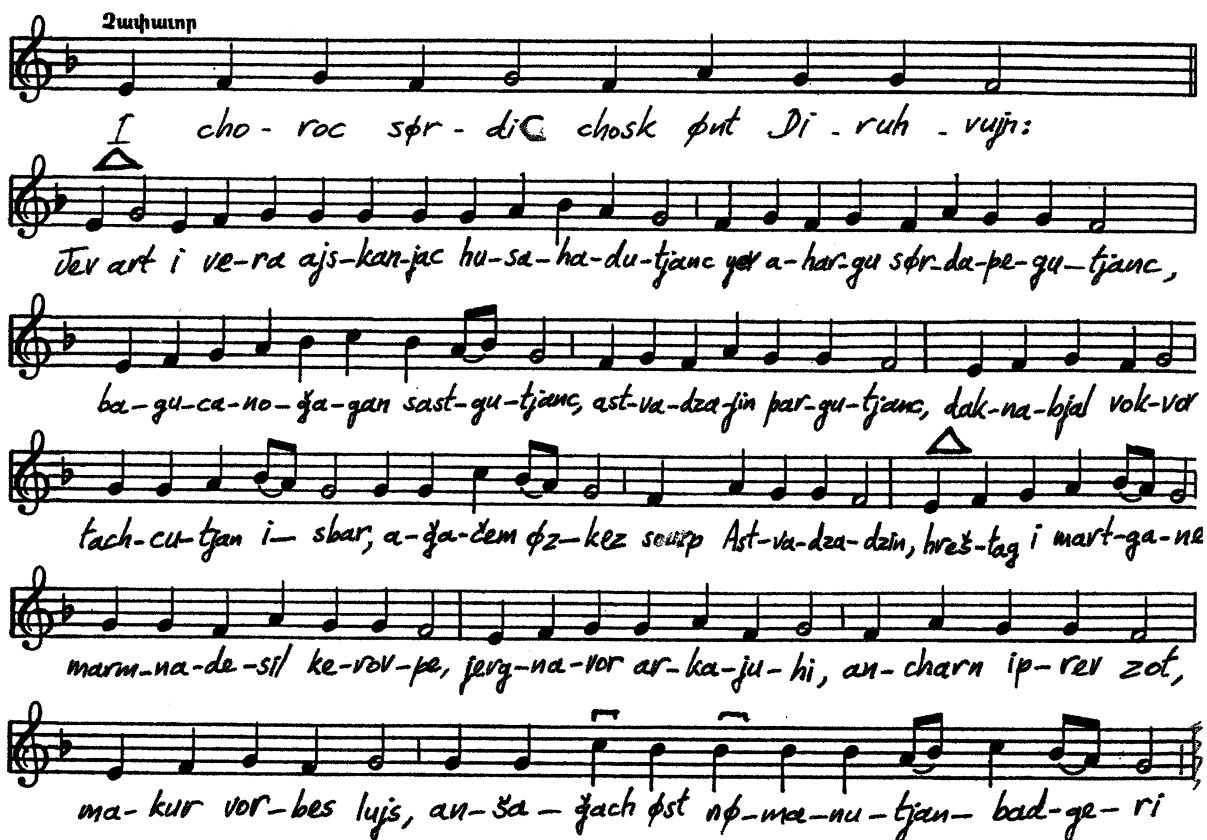 Չափաւոր
I cho - roc sør - diC chosk ønt Di - ruh - vujn:
Jev art i ve-ra ajs-kan-jac hu-sa-ha-du-tjanc yev a-har-gu sør-da-pe-gu-tjanc,
ba-gu-ca-no-ğa-gan sast-gu-tjanc, ast-va-dza-jin par-gu-tjanc, dak-na-bjal vok-vor
tach-cu-tjan i- sbar, a-ğa-čem øz-kez sourp Ast-va-dza-dzin, hreš-tag i mart-ga-ne
marm-na-de-sil ke-rov-pe, jerg-na-vor ar-ka-ju-hi, an-charn ip-rev zot,
ma-kur vor-bes lujs, an-ša-ğach øst nø-ma-nu-tjan- bad-ge-ri